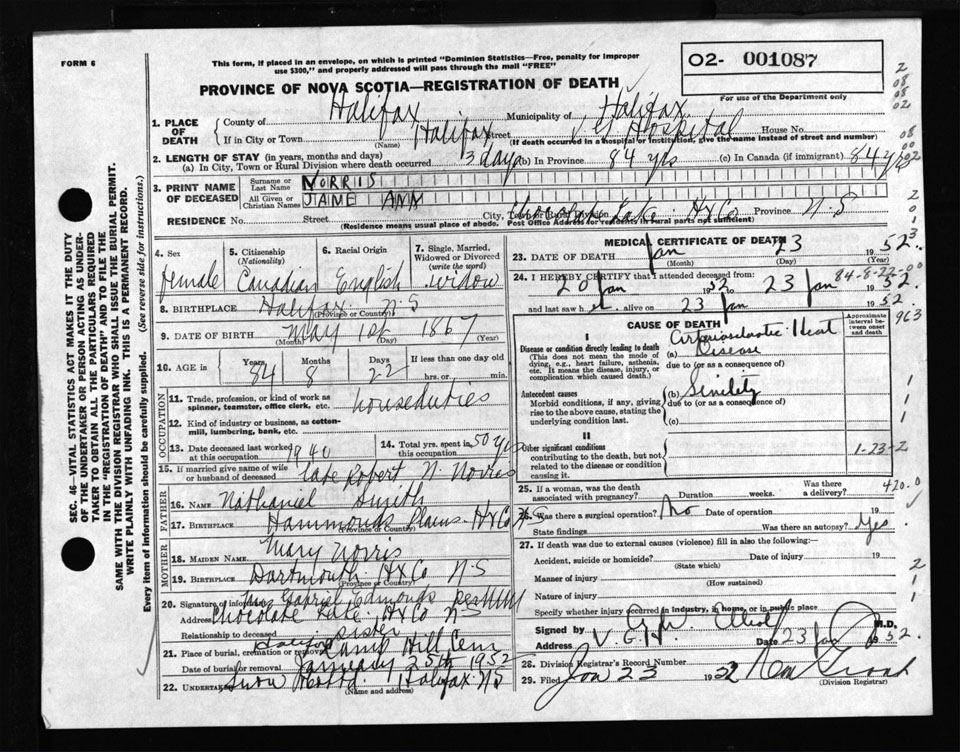 FORM 6
This form, if placed in an envelope, on which is printed "Dominion Statistics—Free, penalty for improper
use $300," and properly addressed will pass through the mail "FREE"
O2- 001087
For use of the Department only
PROVINCE OF NOVA SCOTIA—REGISTRATION OF DEATH
2
08
08
02
1. PLACE OF DEATH
County of Halifax Municipality of Halifax
If in City or Town Halifax Street V G Hospital House No.
(Name) (If death occurred in a hospital or institution, give the name instead of street and number)
08
00
02
2. LENGTH OF STAY (in years, months and days)
(a) In City, Town or Rural Division where death occurred 3 days (b) In Province 84 yrs (c) In Canada (if immigrant) 84 yrs
3. PRINT NAME OF DECEASED
Surname or Last Name NORRIS
All Given or Christian Names JANE ANN
RESIDENCE No. Street City, Town or Rural Division Chocolate Lake Hx Co Province N-S
(Residence means usual place of abode. Post Office Address for residents in rural parts not sufficient)
4. Sex
female
5. Citizenship
(Nationality)
Canadian
6. Racial Origin
English
7. Single, Married,
Widowed or Divorced
(write the word)
widow
8. BIRTHPLACE Halifax N-S
(Province or Country)
9. DATE OF BIRTH May 1st 1867
(Month) (Day) (Year)
10. AGE in
Years Months Days If less than one day old
84 8 22 hrs. or min.
OCCUPATION
11. Trade, profession, or kind of work as
spinner, teamster, office clerk, etc. houseduties
12. Kind of industry or business, as cotton-
mill, lumbering, bank, etc.
13. Date deceased last worked
at this occupation 1940
14. Total yrs. spent in
this occupation 50 yrs
15. If married give name of wife
or husband of deceased late Robert N. Norris
FATHER
16. Name Nathaniel Smith
17. Birthplace Hammonds Plains Hx Co N S
(Province or Country)
MOTHER
18. Maiden Name Mary Norris
19. Birthplace Dartmouth Hx Co N-S
(Province or Country)
20. Signature of informant Mrs Gabriel Edmonds per
Address Chocolate Lake Hx Co N S
Relationship to deceased sister
21. Place of burial, cremation or removal Halifax Camp Hill Cem
Date of burial or removal January 25th 1952
22. Undertaker Snow Halifax N S
(Name and address)
MEDICAL CERTIFICATE OF DEATH
23. DATE OF DEATH Jan 23 1952
(Month) (Day)
84-8-22-00
24. I HEREBY CERTIFY that I attended deceased from:
20 Jan 1952 to 23 Jan 1952.
and last saw h er alive on 23 Jan 1952.
CAUSE OF DEATH
Approximate
interval between
onset and
death
963
I
Disease or condition directly leading to death
(This does not mean the mode of
dying, e.g., heart failure, asthenia,
etc. It means the disease, injury, or
complication which caused death.)
(a) Arteriosclerotic Heart
Disease
due to (or as a consequence of)
Antecedent causes
Morbid conditions, if any, giving
rise to the above cause, stating the
underlying condition last.
(b) Senility
due to (or as a consequence of)
(c)
II
Other significant conditions
contributing to the death, but not
related to the disease or condition
causing it.
1-23-2
420.0
25. If a woman, was the death
associated with pregnancy? Duration weeks. Was there
a delivery?
26. Was there a surgical operation? No Date of operation 19
State findings Was there an autopsy? Yes.
27. If death was due to external causes (violence) fill in also the following:—
Accident, suicide or homicide? Date of injury 19
(State which)
Manner of injury
(How sustained)
Nature of injury
Specify whether injury occurred in industry, in home, or in public place
Signed by M.D.
Address V. G. H. Date 23 Jan 1952.
28. Division Registrar's Record Number
29. Filed Jan 23 1952
(Division Registrar)
SEC. 46—VITAL STATISTICS ACT MAKES IT THE DUTY
OF THE UNDERTAKER OR PERSON ACTING AS UNDER-
TAKER TO OBTAIN ALL THE PARTICULARS REQUIRED
IN THE "REGISTRATION OF DEATH" AND TO FILE THE
SAME WITH THE DIVISION REGISTRAR WHO SHALL ISSUE THE BURIAL PERMIT.
WRITE PLAINLY WITH UNFADING INK. THIS IS A PERMANENT RECORD.
Every item of information should be carefully supplied. (See reverse side for instructions.)